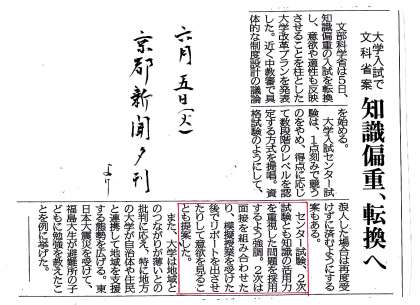 大学入試で
文科省案
知識偏重、転換へ
文部科学省は5日、
知識偏重の入試を転換
し、意欲や適性も反映
させることを柱とした
大学改革プランを発表
した。近く中教審で具
体的な制度設計の議論
を始める。
大学入試センター試
験は、1点刻みで競う
のをやめ、得点に応じ
て数段階のレベルを認
定する方式を提唱。資
格試験のようにして、
浪人した場合は再度受
けずに済むようにする
案もある。
センター試験、2次
試験とも知識の活用力
を重視した問題を採用
するよう強調。2次は
面接を組み合わせた
り、模擬授業を受けた
後でリポートを出させ
たりして意欲を見るこ
とも提案した。
また、大学は地域と
のつながりが薄いとの
批判に応え、特に地方
の大学が自治体や住民
と連携して地域を支援
する態勢を広げる。東
日本大震災を受けて、
福島大生が避難所の子
どもに勉強を教えたこ
とを例に挙げた。
六月五日(火)
京都新聞夕刊
より